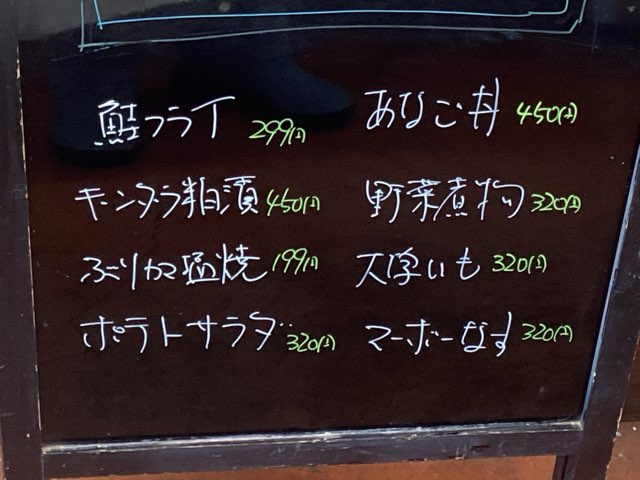 鮭フライ 299円
キンダラ粕漬 450円
ぶりカマ塩焼 199円
ポテトサラダ 320円
あなご丼 450円
野菜煮物 320円
大学いも 320円
マーボーなす 320円